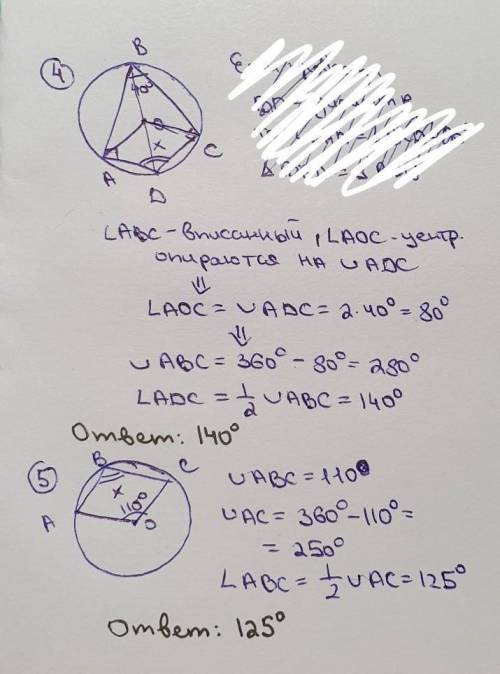 4
B
40°
O
x
A
C
D
∠ABC - вписанный, ∠AOC - центр.
опираются на ∪ADC
⇓
∠AOC = ∪ADC = 2·40° = 80°
⇓
∪ABC = 360° - 80° = 280°
∠ADC = 1/2 ∪ABC = 140°
Ответ: 140°
5
B
C
x
110°
A
O
∪ABC = 110°
∪AC = 360° - 110° =
= 250°
∠ABC = 1/2 ∪AC = 125°
Ответ: 125°